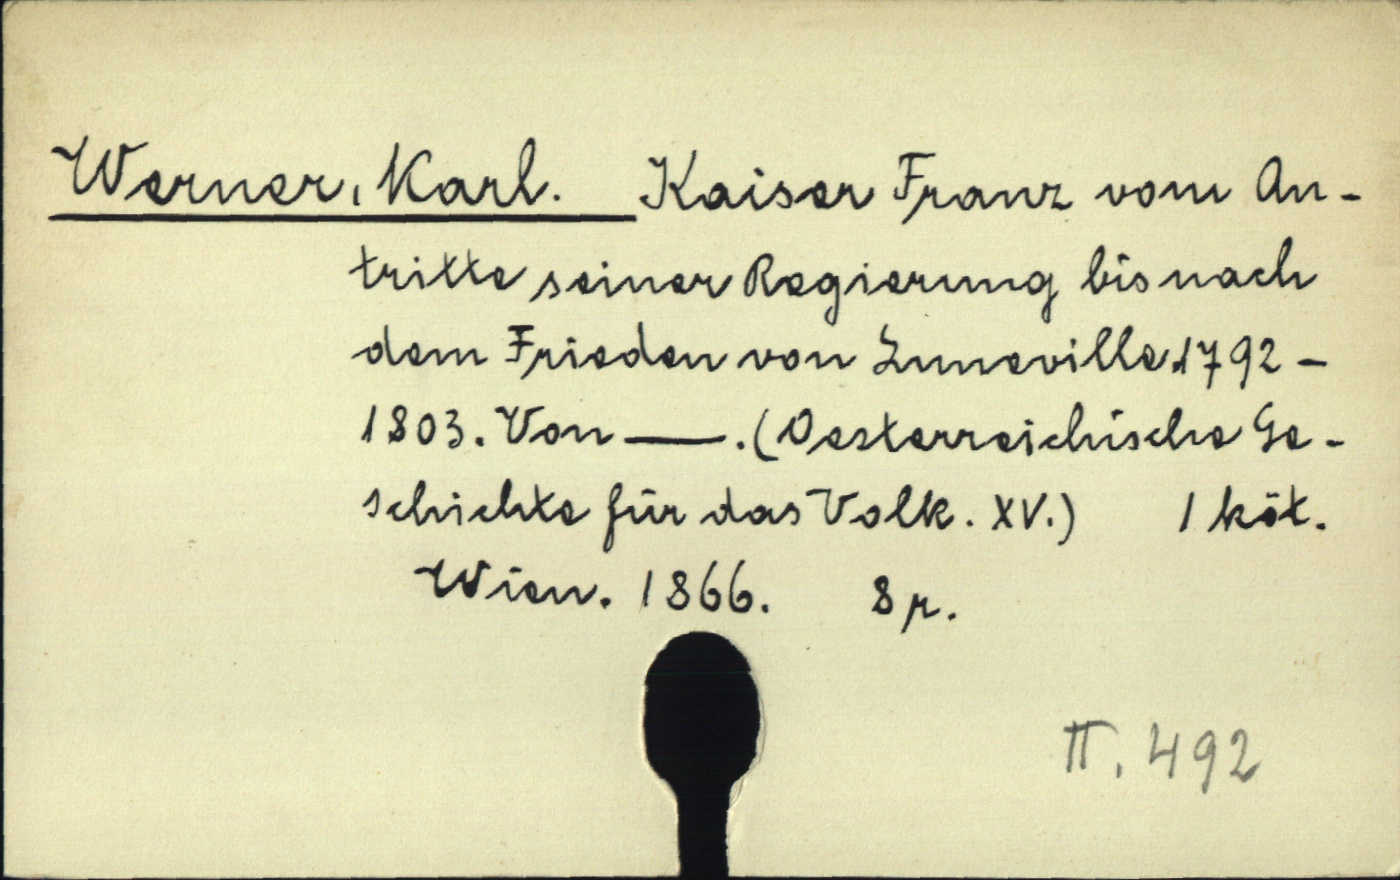 Werner, Karl. Kaiser Franz vom An-
tritte seiner Regierung bis nach
dem Frieden von Luneville 1792 -
1803. Von —. (Oesterreichische Ge-
schichte für das Volk. XV.) 1 köt.
Wien. 1866. 8 r.
II. 492